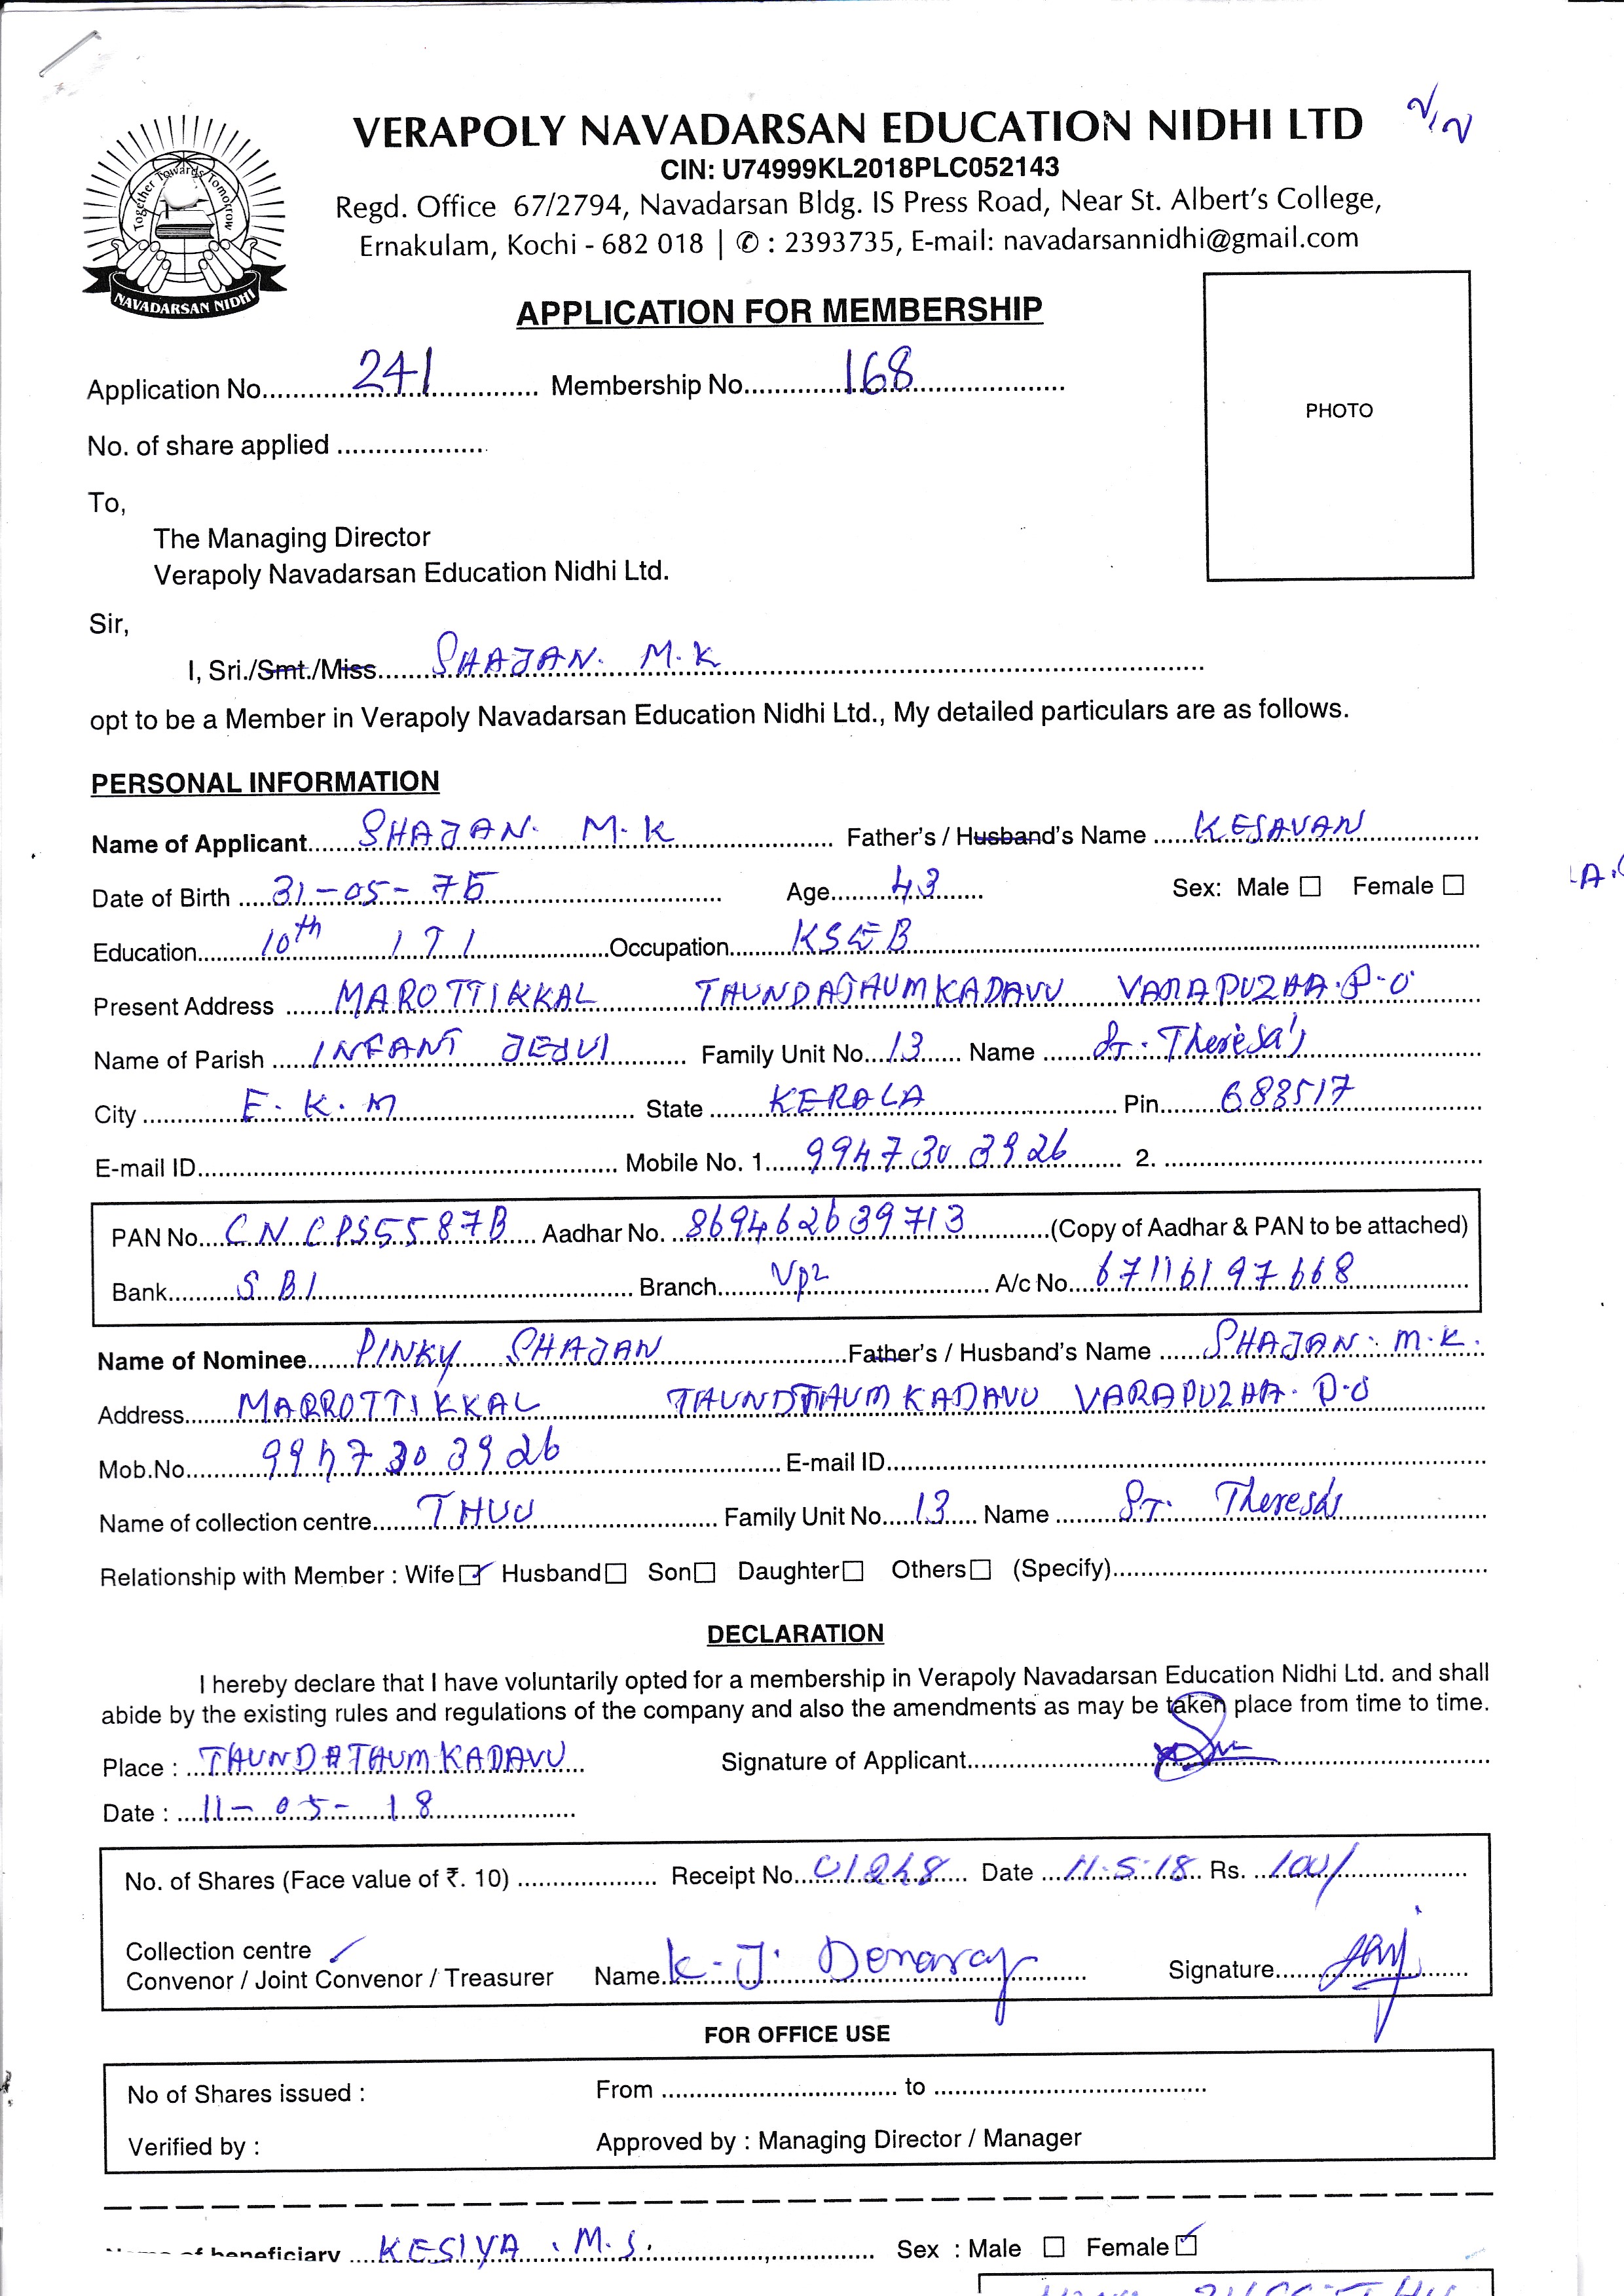 VERAPOLY NAVADARSAN EDUCATION NIDHI LTD
CIN: U74999KL2018PLC052143
Regd. Office 67/2794, Navadarsan Bldg. IS Press Road, Near St. Albert's College,
Ernakulam, Kochi - 682 018 | ✆ : 2393735, E-mail: navadarsannidhi@gmail.com
Together Towards Tomorrow
NAVADARSAN NIDHI
APPLICATION FOR MEMBERSHIP
PHOTO
Application No. 241 Membership No. 168
No. of share applied
To,
The Managing Director
Verapoly Navadarsan Education Nidhi Ltd.
Sir,
I, Sri./Smt./Miss SHAJAN. M.K
opt to be a Member in Verapoly Navadarsan Education Nidhi Ltd., My detailed particulars are as follows.
PERSONAL INFORMATION
Name of Applicant SHAJAN. M.K Father's / Husband's Name KESAVAN
Date of Birth 31-05-75 Age 43 Sex: Male ☐ Female ☐
Education 10th ITI Occupation KSEB
Present Address MAROTTIKKAL THUNDATHUMKADAVU VARAPUZHA.P.O
Name of Parish INFANT JESUI Family Unit No. 13 Name ST. Theresa's
City E.K.M State KERALA Pin 683517
E-mail ID Mobile No. 1. 9947303926 2.
PAN No. CNCPS5587B Aadhar No. 869462639713 (Copy of Aadhar & PAN to be attached)
Bank SBI Branch Vpz A/c No. 67116197668
Name of Nominee PINKY SHAJAN Father's / Husband's Name SHAJAN. M.K.
Address MARROTTIKKAL THUNDATHUMKADAVU VARAPUZHA. P.O
Mob.No. 9947303926 E-mail ID
Name of collection centre Family Unit No. 13 Name ST. Theresa's
Relationship with Member : Wife ☑ Husband ☐ Son ☐ Daughter ☐ Others ☐ (Specify)
DECLARATION
I hereby declare that I have voluntarily opted for a membership in Verapoly Navadarsan Education Nidhi Ltd. and shall
abide by the existing rules and regulations of the company and also the amendments as may be taken place from time to time.
Place : THUNDATHUMKADAVU Signature of Applicant
Date : 11-05-18
No. of Shares (Face value of ₹. 10) Receipt No. 01248 Date 11.5.18 Rs. 100/
Collection centre
Convenor / Joint Convenor / Treasurer Name K.J. Denaraj Signature
FOR OFFICE USE
No of Shares issued : From to
Verified by : Approved by : Managing Director / Manager
Name of beneficiary KESIYA . M.S. Sex : Male ☐ Female ☑